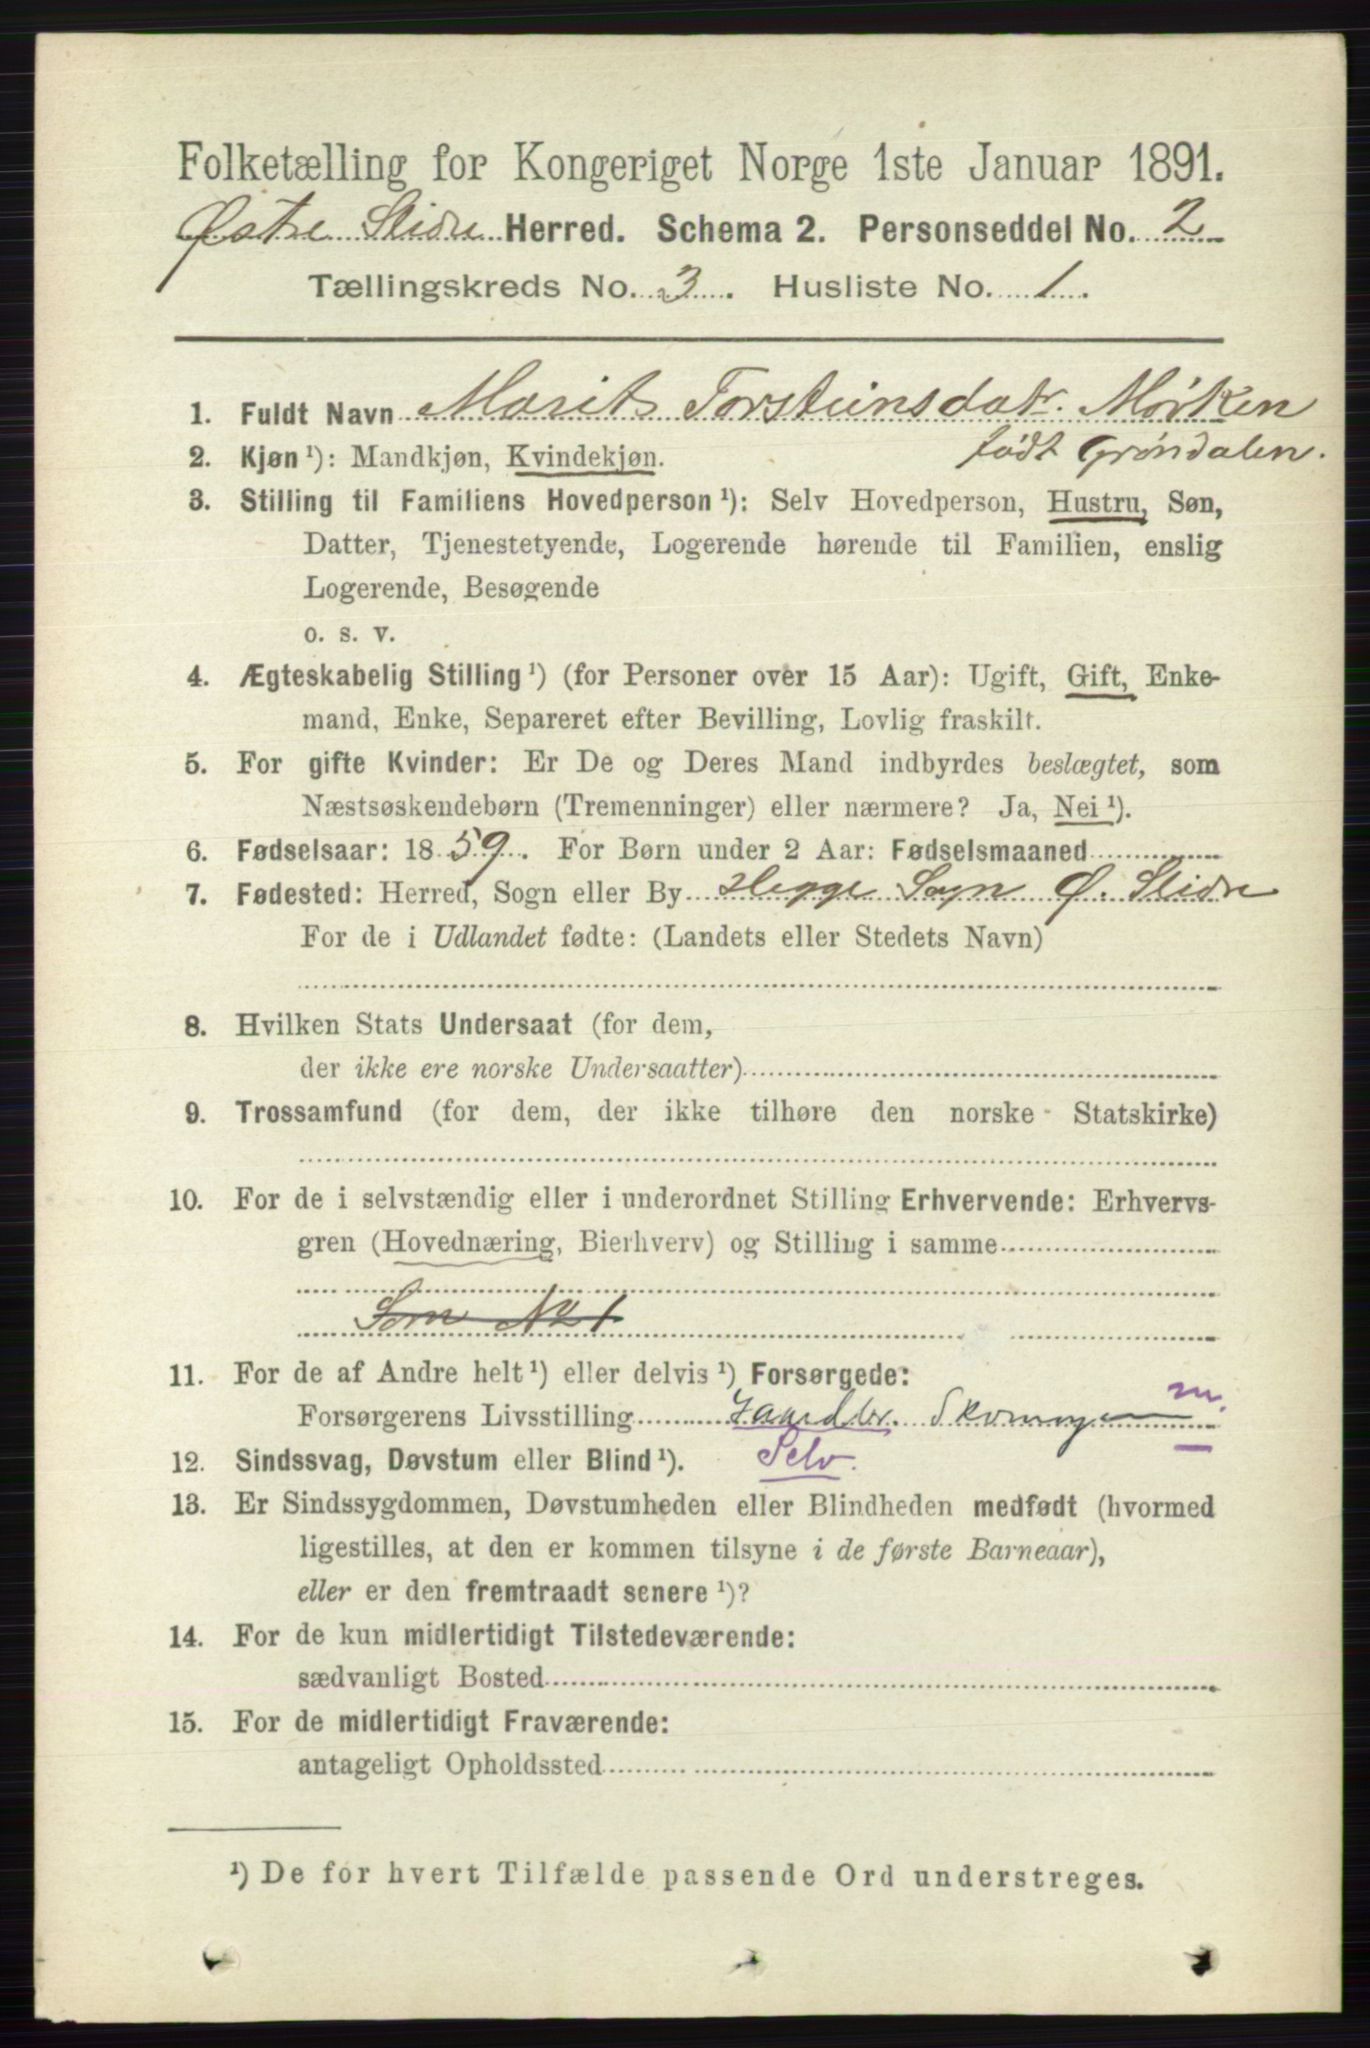 Folketælling for Kongeriget Norge 1ste Januar 1891.
Østre Slidre Herred. Schema 2. Personseddel No. 2
Tællingskreds No. 3. Husliste No. 1.
1. Fuldt Navn Marit Torsteinsdatr. Mørken
født Grøndalen.
2. Kjøn ¹): Mandkjøn, Kvindekjøn.
3. Stilling til Familiens Hovedperson ¹): Selv Hovedperson, Hustru, Søn,
Datter, Tjenestetyende, Logerende hørende til Familien, enslig
Logerende, Besøgende
o. s. v.
4. Ægteskabelig Stilling ¹) (for Personer over 15 Aar): Ugift, Gift, Enke-
mand, Enke, Separeret efter Bevilling, Lovlig fraskilt.
5. For gifte Kvinder: Er De og Deres Mand indbyrdes beslægtet, som
Næstsøskendebørn (Tremenninger) eller nærmere? Ja, Nei ¹).
6. Fødselsaar: 1859. For Børn under 2 Aar: Fødselsmaaned
7. Fødested: Herred, Sogn eller By Hegge Sogn Ø. Slidre
For de i Udlandet fødte: (Landets eller Stedets Navn)
8. Hvilken Stats Undersaat (for dem,
der ikke ere norske Undersaatter)
9. Trossamfund (for dem, der ikke tilhøre den norske Statskirke)
10. For de i selvstændig eller i underordnet Stilling Erhvervende: Erhvervs-
gren (Hovednæring, Bierhverv) og Stilling i samme
Som No 1
11. For de af Andre helt ¹) eller delvis ¹) Forsørgede:
m.
Forsørgerens Livsstilling Gaardbr.
Selv.
12. Sindssvag, Døvstum eller Blind ¹).
13. Er Sindssygdommen, Døvstumheden eller Blindheden medfødt (hvormed
ligestilles, at den er kommen tilsyne i de første Barneaar),
eller er den fremtraadt senere ¹)?
14. For de kun midlertidigt Tilstedeværende:
sædvanligt Bosted
15. For de midlertidigt Fraværende:
antageligt Opholdssted
¹) De for hvert Tilfælde passende Ord understreges.